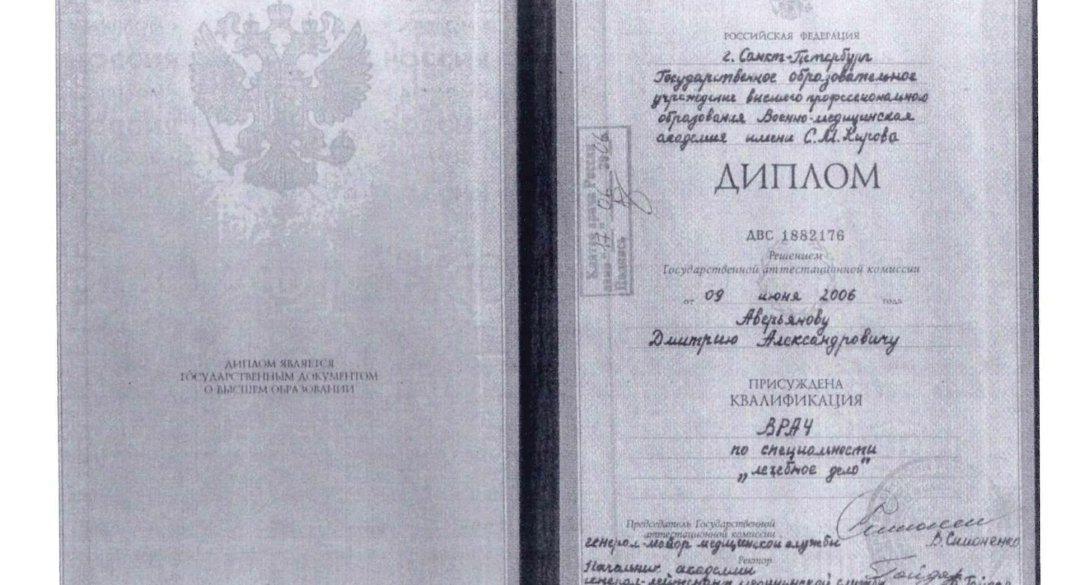 ДИПЛОМ ЯВЛЯЕТСЯ
ГОСУДАРСТВЕННЫМ ДОКУМЕНТОМ
О ВЫСШЕМ ОБРАЗОВАНИИ
РОССИЙСКАЯ ФЕДЕРАЦИЯ
г. Санкт-Петербург
Государственное образовательное
учреждение высшего профессионального
образования Военно-медицинская
академия имени С.М.Кирова
ДИПЛОМ
Клятву врача России
Подпись
ДВС 1882176
Решением
Государственной аттестационной комиссии
от 09 июня 2006 года
Аверьянову
Дмитрию Александровичу
ПРИСУЖДЕНА
КВАЛИФИКАЦИЯ
ВРАЧ
по специальности
„лечебное дело"
Председатель Государственной
аттестационной комиссии
генерал-майор медицинской службы В.Симоненко
Ректор
Начальник академии
генерал-лейтенант медицинской службы